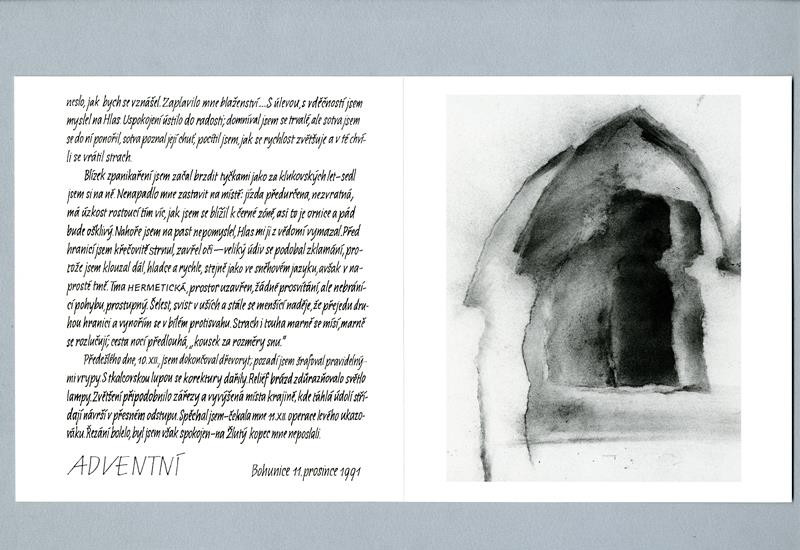 neslo, jak bych se vznášel. Zaplavilo mne blaženství... S úlevou, s vděčností jsem
myslel na Hlas. Uspokojení ústilo do radosti; domníval jsem se trvalé, ale sotva jsem
se do ní ponořil, sotva poznal její chuť, pocítil jsem, jak se rychlost zvětšuje a v té chví-
li se vrátil strach.
Blízek zpanikaření jsem začal brzdit tyčkami jako za klukovských let – sedl
jsem si na ně. Nenapadlo mne zastavit na místě: jízda předurčena, nezvratná,
má úzkost rostoucí tím víc, jak jsem se blížil k černé zóně, asi to je ornice a pád
bude ošklivý. Nahoře jsem na past nepomyslel, Hlas mi ji z vědomí vymazal. Před
hranicí jsem křečovitě strnul, zavřel oči — veliký údiv se podobal zklamání, pro-
tože jsem klouzal dál, hladce a rychle, stejně jako ve sněhovém jazyku, avšak v na-
prosté tmě. Tma HERMETICKÁ, prostor uzavřen, žádné prosvítání, ale nebrání-
cí pohybu, prostupný. Šelest, svist v uších a stále se menšící naděje, že přejedu dru-
hou hranici a vynořím se v bílém protisvahu. Strach i touha marně se mísí, marně
se rozlučují; cesta nocí předlouhá, „kousek za rozměry snu."
Předešlého dne, 10. XII., jsem dokončoval dřevoryt; pozadí jsem šrafoval pravidelný-
mi vrypy. S tkalcovskou lupou se korektury dařily. Reliéf brázd zdůrazňovalo světlo
lampy. Zvětšení připodobnilo zářezy a vyvýšená místa krajině, kde táhlá údolí stří-
dají návrší v přesném odstupu. Spěchal jsem – čekala mne 11. XII. operace levého ukazo-
váku. Řezání bolelo, byl jsem však spokojen – na Žlutý kopec mne neposlali.
ADVENTNÍ
Bohunice 11. prosince 1991